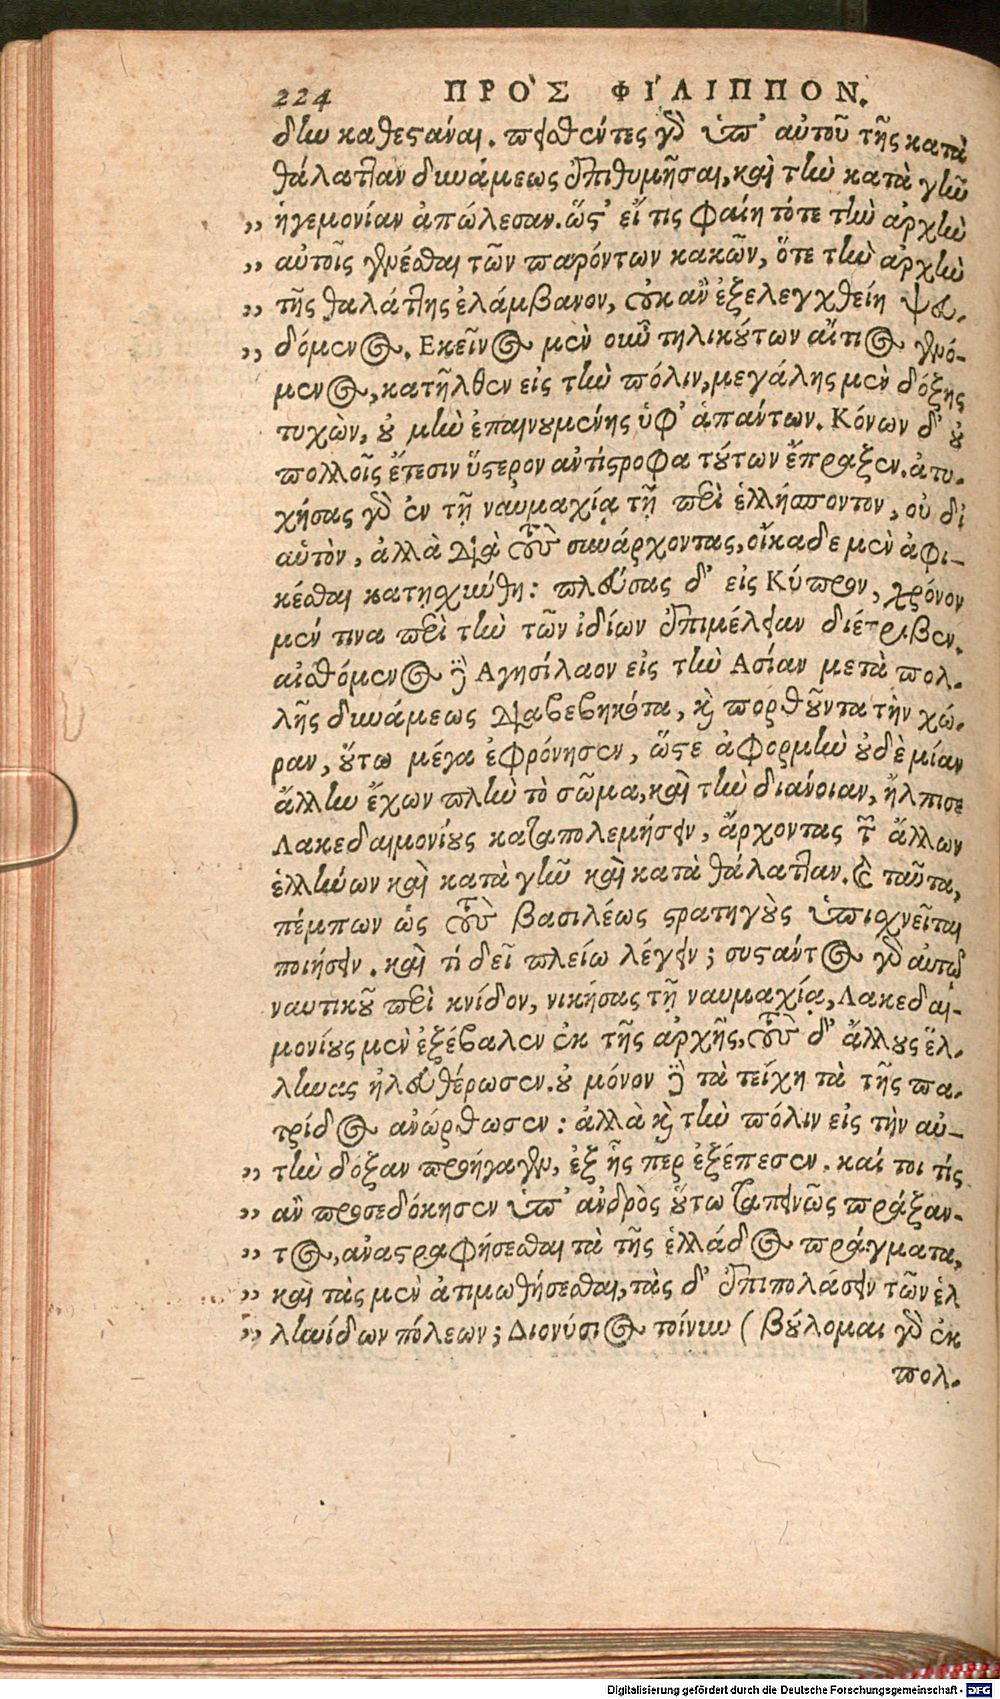 224 ΠΡΟ`Σ ΦΙ´ΛΙΠΠΟΝ.
δὴν καθεστάναι. πεισθέντες γὰρ ὑπ' αὐτοῦ τῆς κατὰ
θάλατταν δυνάμεως ἐπιθυμῆσαι, καὶ τὴν κατὰ γῆν
„ ἡγεμονίαν ἀπώλεσαν. ὥστ' εἴ τις φαίη τότε τὴν ἀρχὴν
„ αὐτοῖς γενέσθαι τῶν παρόντων κακῶν, ὅτε τὴν ἀρχὴν
„ τῆς θαλάττης ἐλάμβανον, οὐκ ἂν ἐξελεγχθείη ψευ-
„ δόμενος. Εκεῖνος μὲν οὖν τηλικούτων αἴτιος γενό-
μενος, κατῆλθεν εἰς τὴν πόλιν, μεγάλης μὲν δόξης
τυχὼν, οὐ μὴν ἐπαινουμένης ὑφ' ἁπάντων. Κόνων δ' οὐ
πολλοῖς ἔτεσιν ὕστερον ἀντίστροφα τούτων ἔπραξεν. ἀτυ-
χήσας γὰρ ἐν τῇ ναυμαχίᾳ τῇ περὶ ἑλλήσποντον, οὐ δι
αὑτὸν, ἀλλὰ διὰ τοὺς συνάρχοντας, οἴκαδε μὲν ἀφι-
κέσθαι κατῃσχύνθη: πλεύσας δ' εἰς Κύπρον, χρόνον
μέν τινα περὶ τὴν τῶν ἰδίων ἐπιμέλειαν διέτριβεν.
αἰσθόμενος δ' Αγησίλαον εἰς τὴν Ασίαν μετὰ πολ-
λῆς δυνάμεως διαβεβηκότα, καὶ πορθοῦντα τὴν χώ-
ραν, οὕτω μέγα ἐφρόνησεν, ὥστε ἀφορμὴν οὐδὲ μίαν
ἄλλην ἔχων πλὴν τὸ σῶμα, καὶ τὴν διάνοιαν, ἤλπισε
Λακεδαιμονίους καταπολεμήσειν, ἄρχοντας τῶν ἄλλων
ἑλλήνων καὶ κατὰ γῆν καὶ κατὰ θάλατταν. καὶ ταῦτα,
πέμπων ὡς τοὺς βασιλέως στρατηγοὺς ὑπισχνεῖται
ποιήσειν. καὶ τί δεῖ πλείω λέγειν; συστάντος γὰρ αὐτῷ
ναυτικοῦ περὶ κνίδον, νικήσας τῇ ναυμαχίᾳ, Λακεδαι-
μονίους μὲν ἐξέβαλεν ἐκ τῆς ἀρχῆς, τοὺς δ' ἄλλους ἕλ-
ληνας ἠλευθέρωσεν. οὐ μόνον δὲ τὰ τείχη τὰ τῆς πα-
τρίδος ἀνώρθωσεν: ἀλλὰ καὶ τὴν πόλιν εἰς τὴν αὐ-
„ τὴν δόξαν προήγαγεν, ἐξ ἧς περ ἐξέπεσεν. καί τοι τίς
„ ἂν προσεδόκησεν ὑπ' ἀνδρὸς οὕτω ταπεινῶς πράξαν-
„ τος, ἀναστραφήσεσθαι τὰ τῆς ἑλλάδος πράγματα,
„ καὶ τὰς μὲν ἀτιμωθήσεσθαι, τὰς δ' ἐπιπολάσειν τῶν ἑλ
„ ληνίδων πόλεων; Διονύσιος τοίνυν (βούλομαι γὰρ ἐκ
πολ-
Digitalisierung gefördert durch die Deutsche Forschungsgemeinschaft - DFG